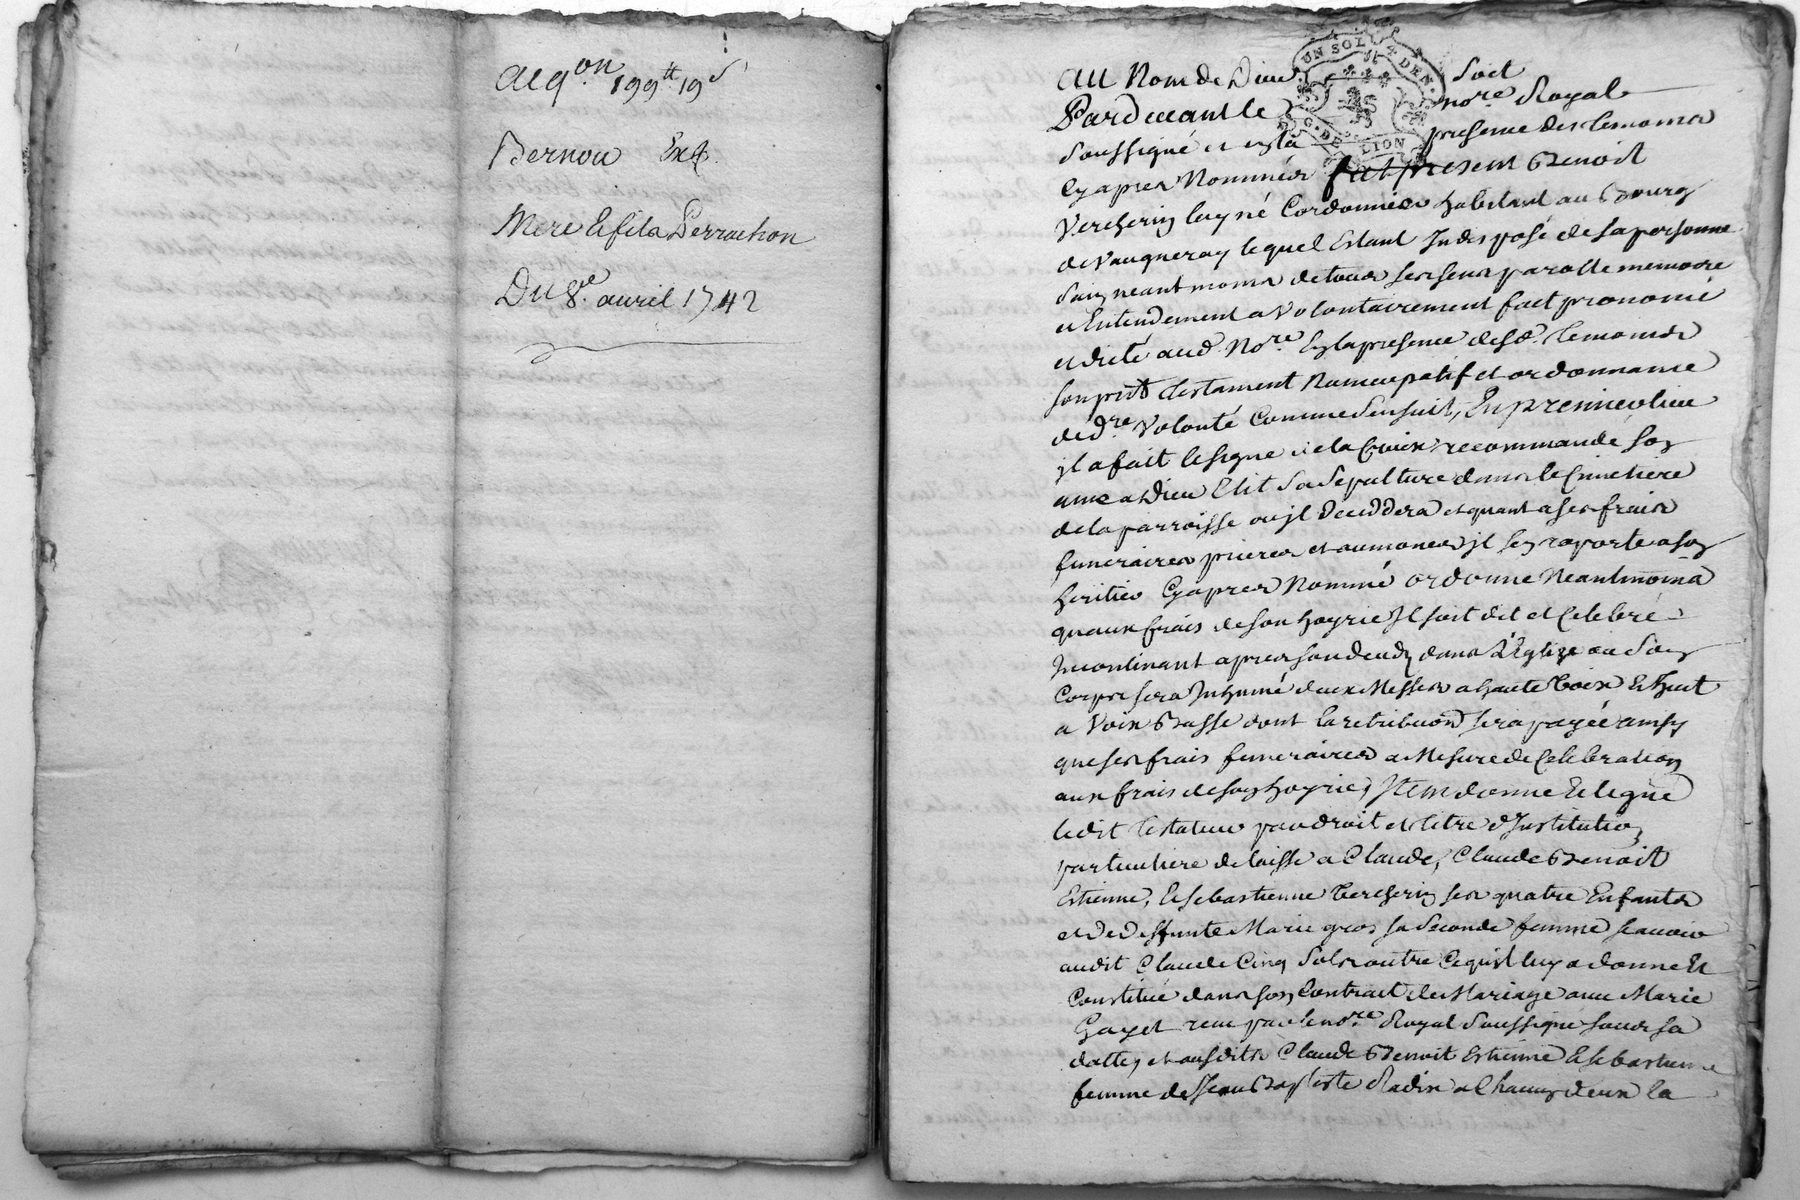 acq.on 199tt 19s
Bernou Exp.
Mere & fils Perrachon
Du 8.e avril 1742
UN SOL 4 DEN.
G. DE LION
au Nom de Dieu soit
Pardevant le no.re Royal
soussigné et en la presence des temoins
cy apres Nommés fut present Benoit
Vercherin layné Cordonnier habitant au Bourg
de Vaugneray lequel Estant Indisposé de sa personne
Jouissant de tous ses sens parolle memoire
et Entendement a Volontairement fait prononcé
et dicté aud. No.re En la presence desd. temoins
son pnt testament Nuncupatif et ordonnance
de d.re Volonté Comme sensuit, En premier lieu
jl a fait le signe de la Croix recommandé son
ame a Dieu Elit sa sepulture dans le Cimetiere
de la parroisse ou jl deceddera et quant a ses frais
funeraires prieres et aumones jl sen raporte a son
heritier Cy apres Nommé ordonne Neantmoins
quaux frais de son hoyrie Il soit dit et Celebré
Incontinant apres son deceds dans L'Eglize ou son
Corps sera Inhumé deux Messes a haute Voix & huit
a Voix Basse dont la retribuon sera payée ainsy
que ses frais funeraires a Mesure de Celebration
aux frais de son hoyrie, Item donne & legue
ledit testateur par droit et titre d'Institution
particuliere delaisse a Claude, Claude Benoit
Estienne, & Sebastienne Vercherin ses quatre Enfants
et de deffunte Marie gros sa seconde femme scavoir
audit Claude Cinq Sols outre Ce quil luy a donné Et
Constitué dans son Contract de Mariage avec Marie
Gayet receu par le no.re Royal soussigné sous sa
datte, et ausdits Claude Benoit Estienne & Sebastienne
femme de Jean Baptiste Radix a Chacun deux la